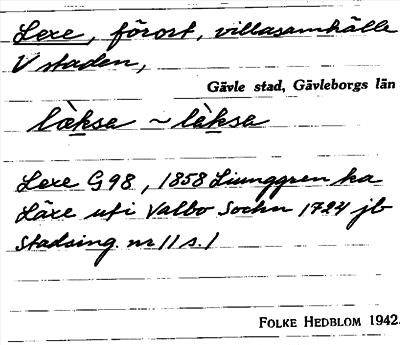 Lexe, förort, villasamhälle
V staden,
Gävle stad, Gävleborgs län
lèkse ~ lèkse
Lexe G98, 1858 Ljunggren ka
Läxe uti Valbo Sochn 1724 jb
Stadsing. nr 11 s. 1
FOLKE HEDBLOM 1942.